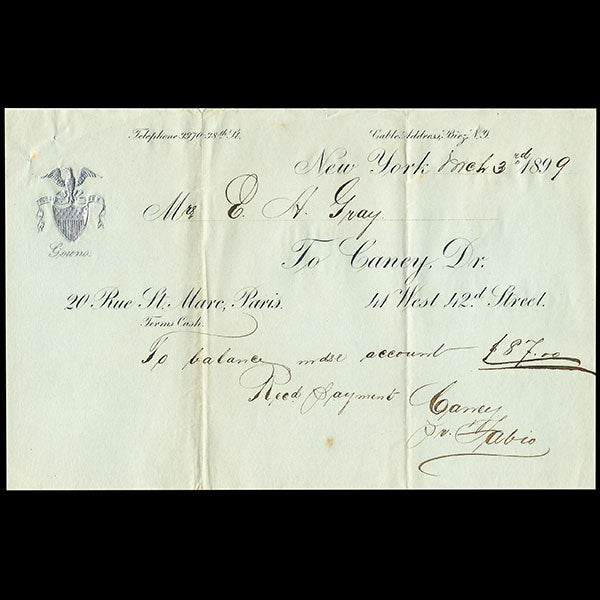 Telephone 3970-38th St.
Cable Address, Biez N.Y.
New York Mch 3rd 1899
Mrs E. A. Gray
Gowns.
To Caney, Dr.
20 Rue St. Marc, Paris.
41 West 42d Street.
Terms Cash.
To balance mdse account $87.00
Recd payment Caney